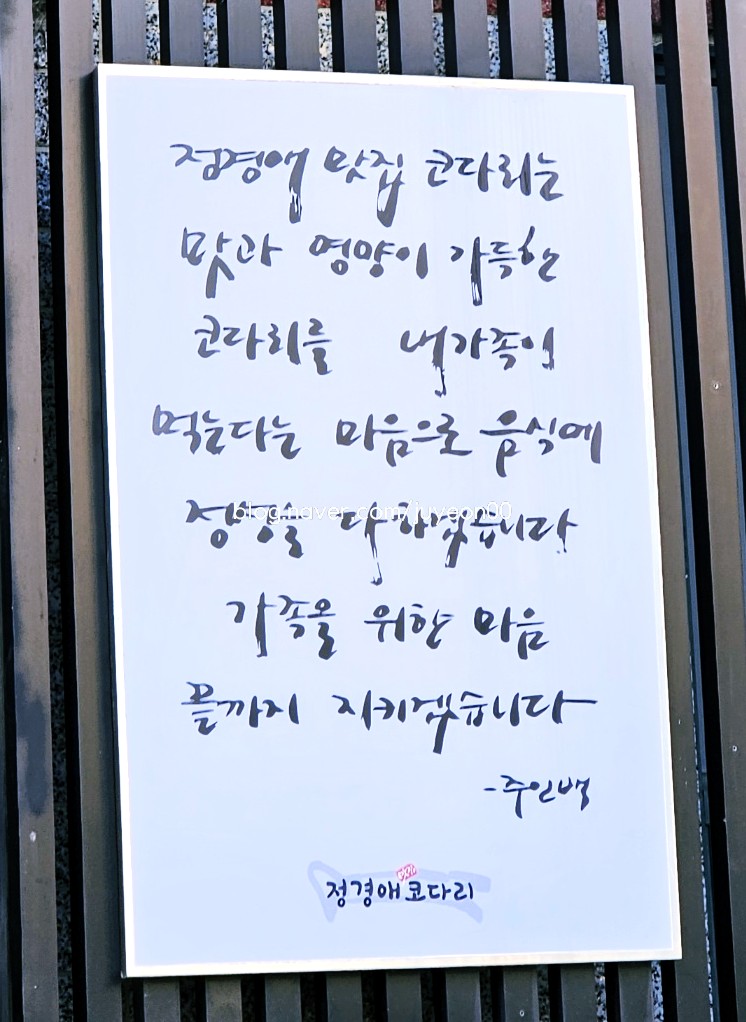 정경애 맛집 코다리는
맛과 영양이 가득한
코다리를 내가족이
먹는다는 마음으로 음식에
정성을 다하겠습니다
blog.naver.com/juyeon00
가족을 위한 마음
끝까지 지키겠습니다
-주인백
정경애코다리